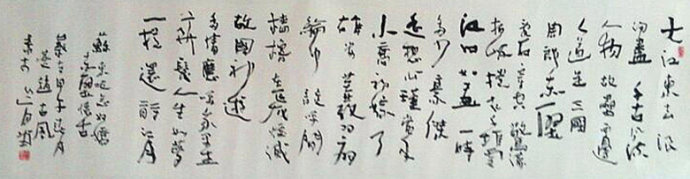 大江東去浪
淘盡千古風流
人物故壘西邊
人道是三國
周郎赤壁
亂石驚濤
拍岸捲起千堆雪
江山如畫一時
多少豪傑
遙想公瑾當年
小喬初嫁了
雄姿英發羽扇
綸巾談笑間
檣櫓灰飛煙滅
故國神遊
多情應笑我早生
髮人生如夢
一樽還酹江月
蘇東坡念奴嬌
赤壁懷古
甲子月